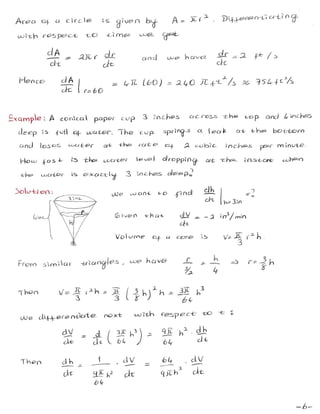 Area of a circle is given by A = πr². Differentiating
with respect to time we get
dA/dt = 2πr dr/dt and we have dr/dt = 2 ft/s
Hence dA/dt | r=60 = 4π(60) = 240 π ft²/s ≈ 754 ft²/s
Example: A conical paper cup 3 inches across the top and 4 inches
deep is full of water. The cup springs a leak at the bottom
and loses water at the rate of 2 cubic inches per minute.
How fast is the water level dropping at the instant when
the water is exactly 3 inches deep?
Solution: We want to find dh/dt | h=3in = ?
3 in
4in
r
h
Given that dV/dt = -2 in³/min
Volume of a cone is V = π/3 r²h
From similar triangles, we have r/(3/2) = h/4 ⇒ r = 3/8 h
Then V = π/3 r²h = π/3 (3/8 h)² h = 3π/64 h³
We differentiate next with respect to t :
dV/dt = d/dt (3π/64 h³) = 9π/64 h² · dh/dt
Then dh/dt = 1/(9π/64 h²) · dV/dt = 64/9πh² · dV/dt
-6-